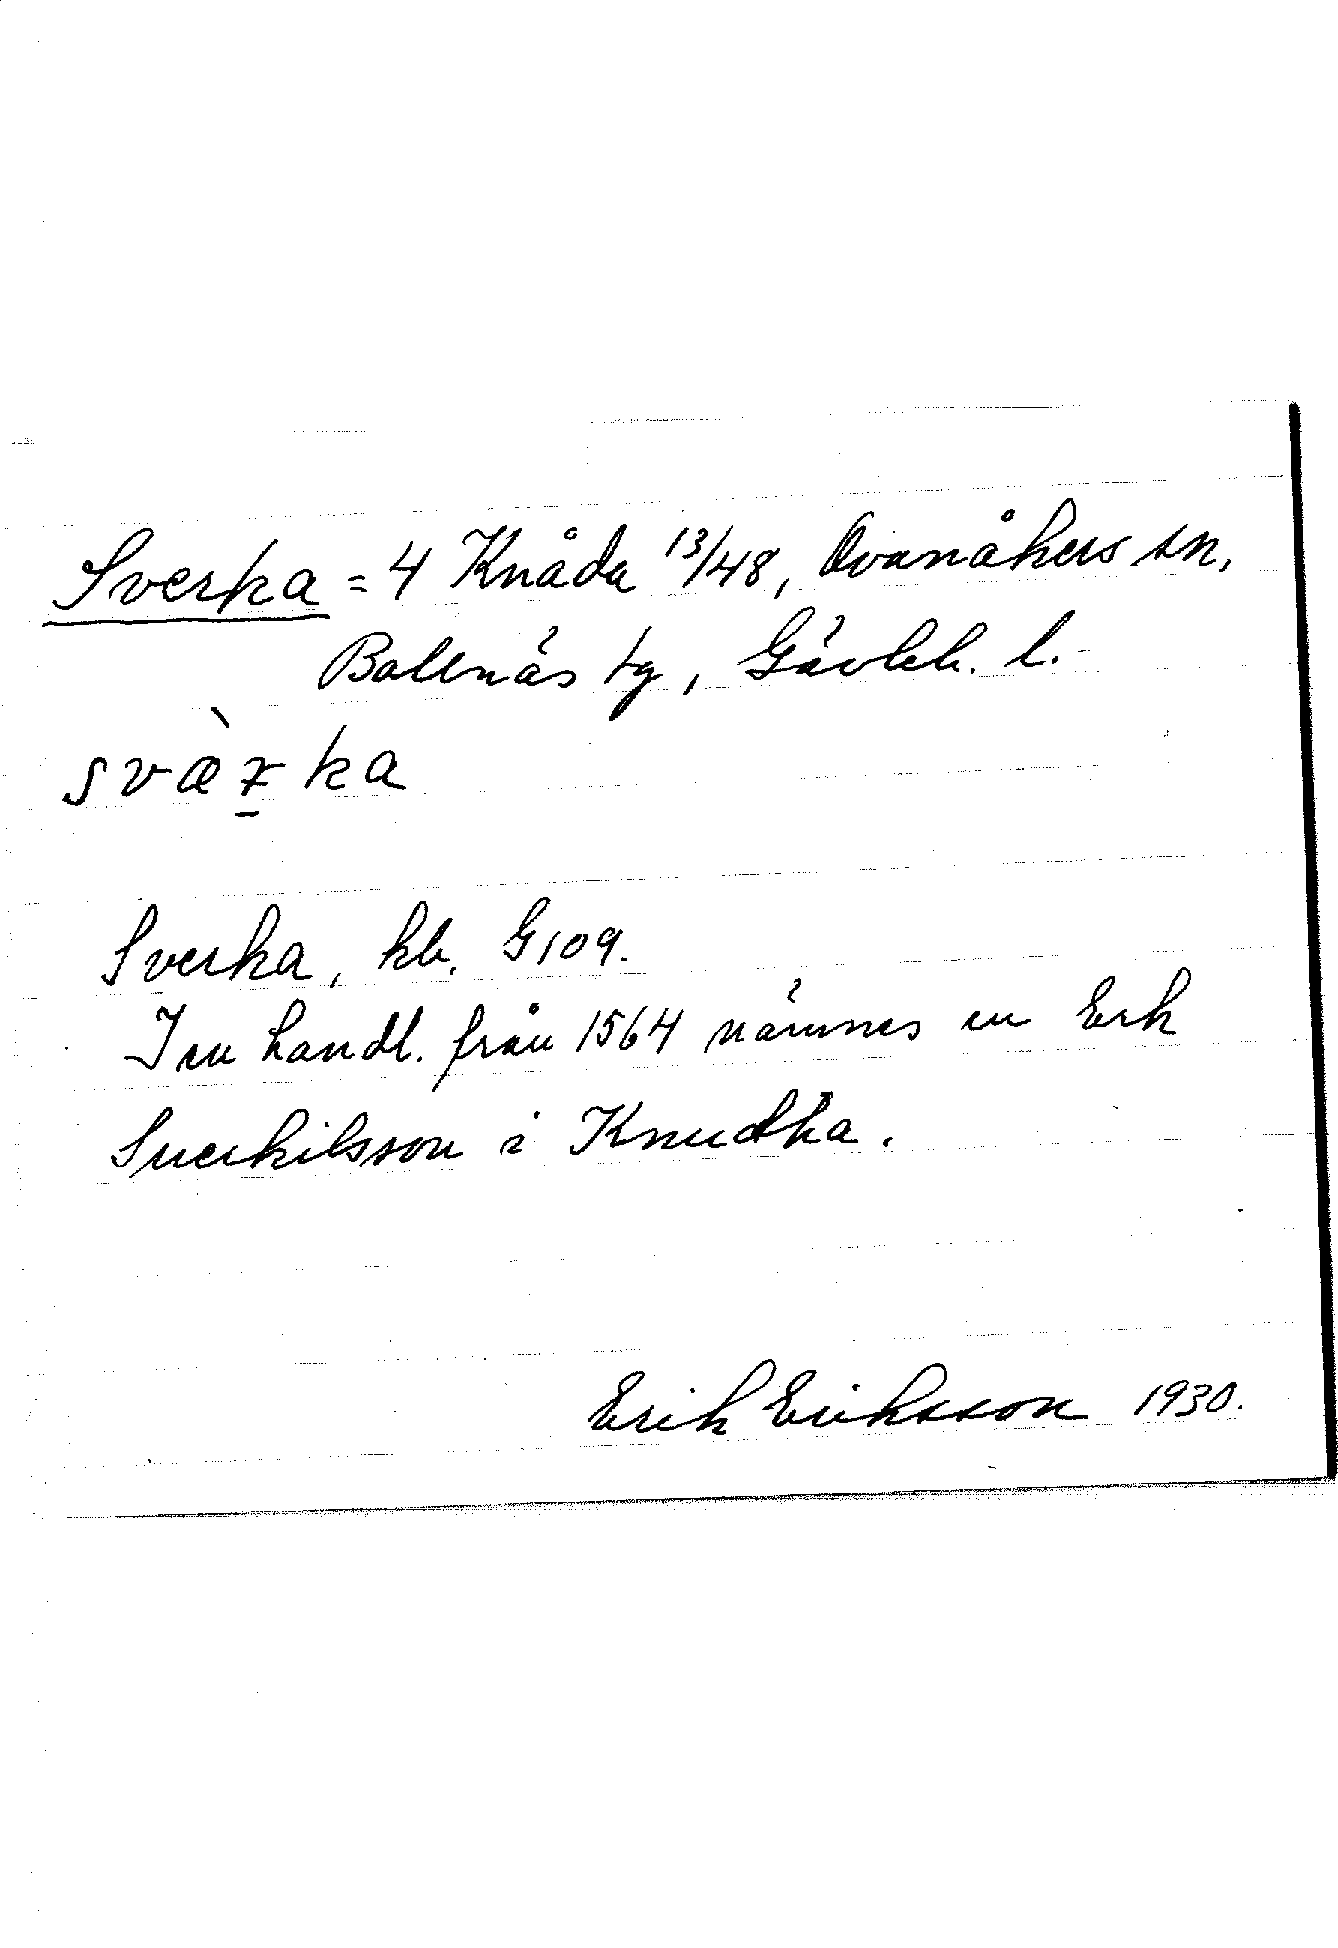 Sverka = 4 Knåda 13/48, Ovanåkers sn,
Bollnäs tg, Gävleb. l.
svæ̀r̠ka
Sverka, kb. G109.
I en handl. från 1564 nämnes en Erk
Suerkilsson i Knudha.
Erik Eriksson 1930.